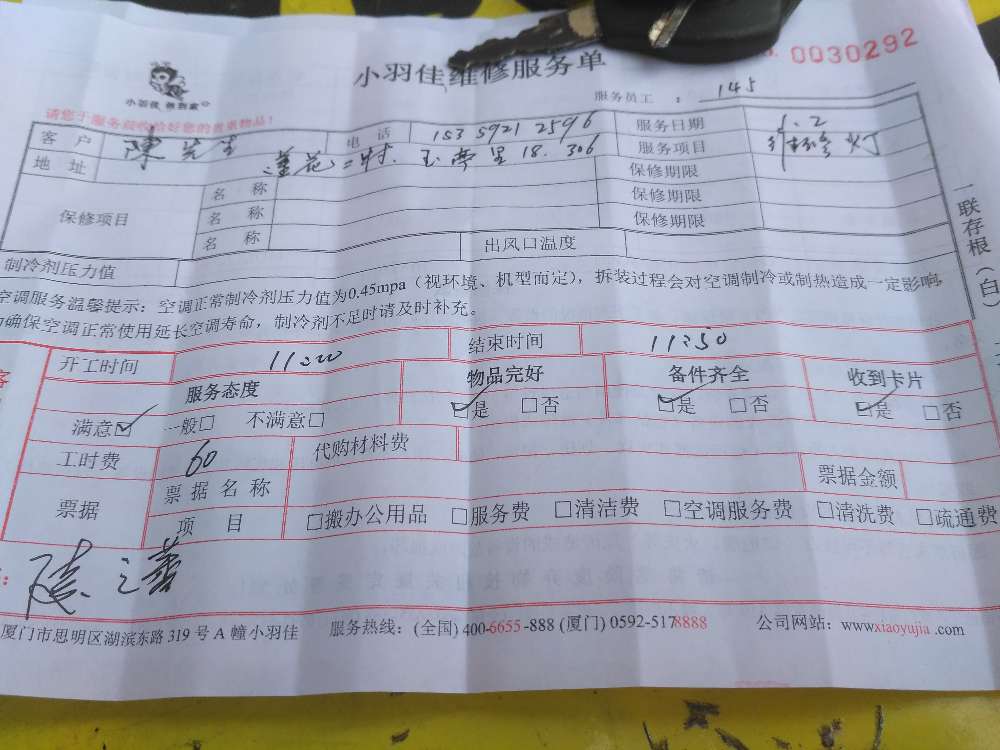 0030292
小羽佳维修服务单
小羽佳
服务员工 : 145
请您于服务前收拾好您的贵重物品!
客户 陳先生 电话 153 5921 2596 服务日期 1.2
地址 莲花二村. 玉亭里 18. 306 服务项目 灯
保修项目 名称 保修期限
名称 保修期限
名称 保修期限
制冷剂压力值 出风口温度
空调服务温馨提示: 空调正常制冷剂压力值为0.45mpa (视环境、机型而定), 拆装过程会对空调制冷或制热造成一定影响,
确保空调正常使用延长空调寿命, 制冷剂不足时请及时补充。
一联存根 (白)
开工时间 11:20 结束时间 11:50
服务态度 物品完好 备件齐全 收到卡片
满意☑ 一般□ 不满意□ ☑是 □否 ☑是 □否 ☑是 □否
工时费 60 代购材料费
票据 票据名称 票据金额
项目 □搬办公用品 □服务费 □清洁费 □空调服务费 □清洗费 □疏通费
厦门市思明区湖滨东路 319 号 A 幢小羽佳 服务热线: (全国) 400-6655-888 (厦门) 0592-5178888 公司网站: www.xiaoyujia.com